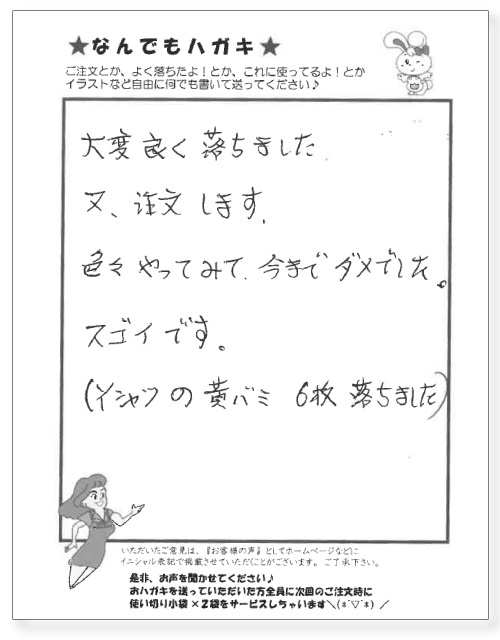 ★なんでもハガキ★
ご注文とか、よく落ちたよ！とか、これに使ってるよ！とか
イラストなど自由に何でも書いて送ってください♪
大変良く落ちました
又、注文します.
色々やってみて、今までダメでした。
スゴイです。
(Yシャツの黄バミ 6枚 落ちました)
いただいたご意見は、『お客様の声』としてホームページなどに
イニシャル表記で掲載させていただくことがございます。ご了承下さい。
是非、お声を聞かせてください♪
おハガキを送っていただいた方全員に次回のご注文時に
使い切り小袋×2袋をサービスしちゃいます＼(*ˊ▽ˋ*)／